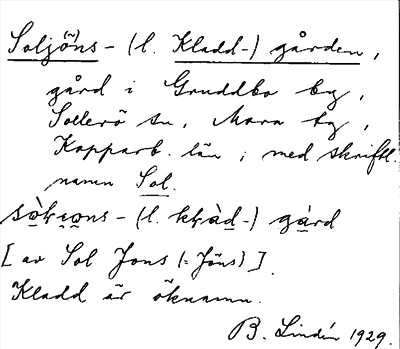 Soljöns- (l. Kladd-) gården,
gård i Gruddbo by,
Sollerö sn, Mora tg,
Kopparb. län; med skriftl.
namn Sol.
- (l. -) gård
[av Sol Jons (= Jöns)].
Kladd är öknamn.
B. Lindén 1929.